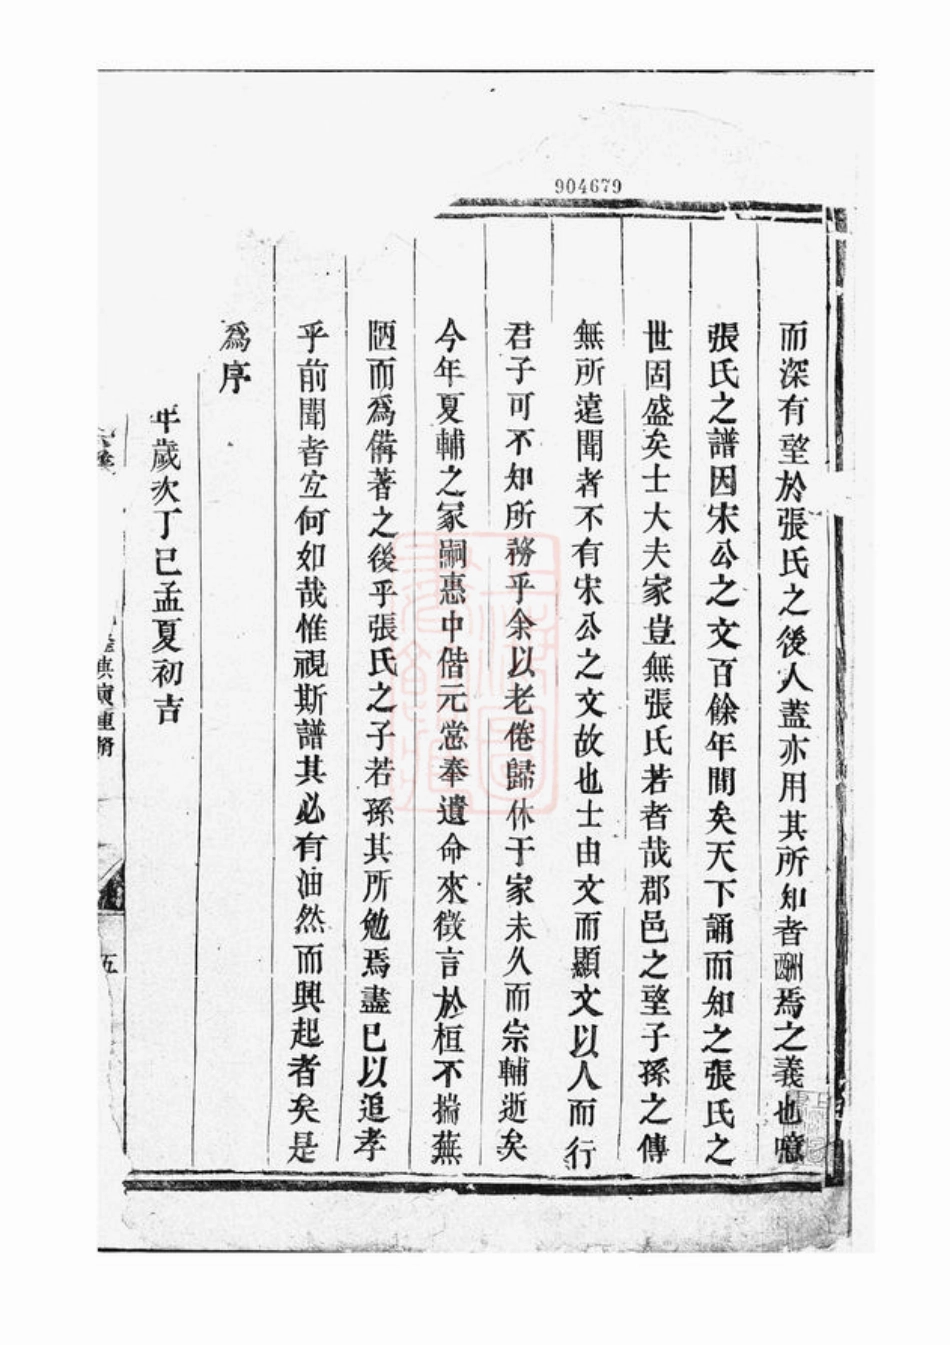 904679
而深有望於張氏之後人蓋亦用其所知者酬焉之義也噫
張氏之譜因宋公之文百餘年間矣天下誦而知之張氏之
世固盛矣士大夫家豈無張氏若者哉郡邑之望子孫之傳
無所遠聞者不有宋公之文故也士由文而顯文以人而行
君子可不知所務乎余以老倦歸休于家未久而宗輔逝矣
今年夏輔之冢嗣惠中偕元當奉遺命來徵言於桓不揣蕪
陋而爲備著之後乎張氏之子若孫其所勉焉盡已以追孝
乎前聞者宐何如哉惟視斯譜其必有油然而興起者矣是
爲序
年歲次丁巳孟夏初吉
五